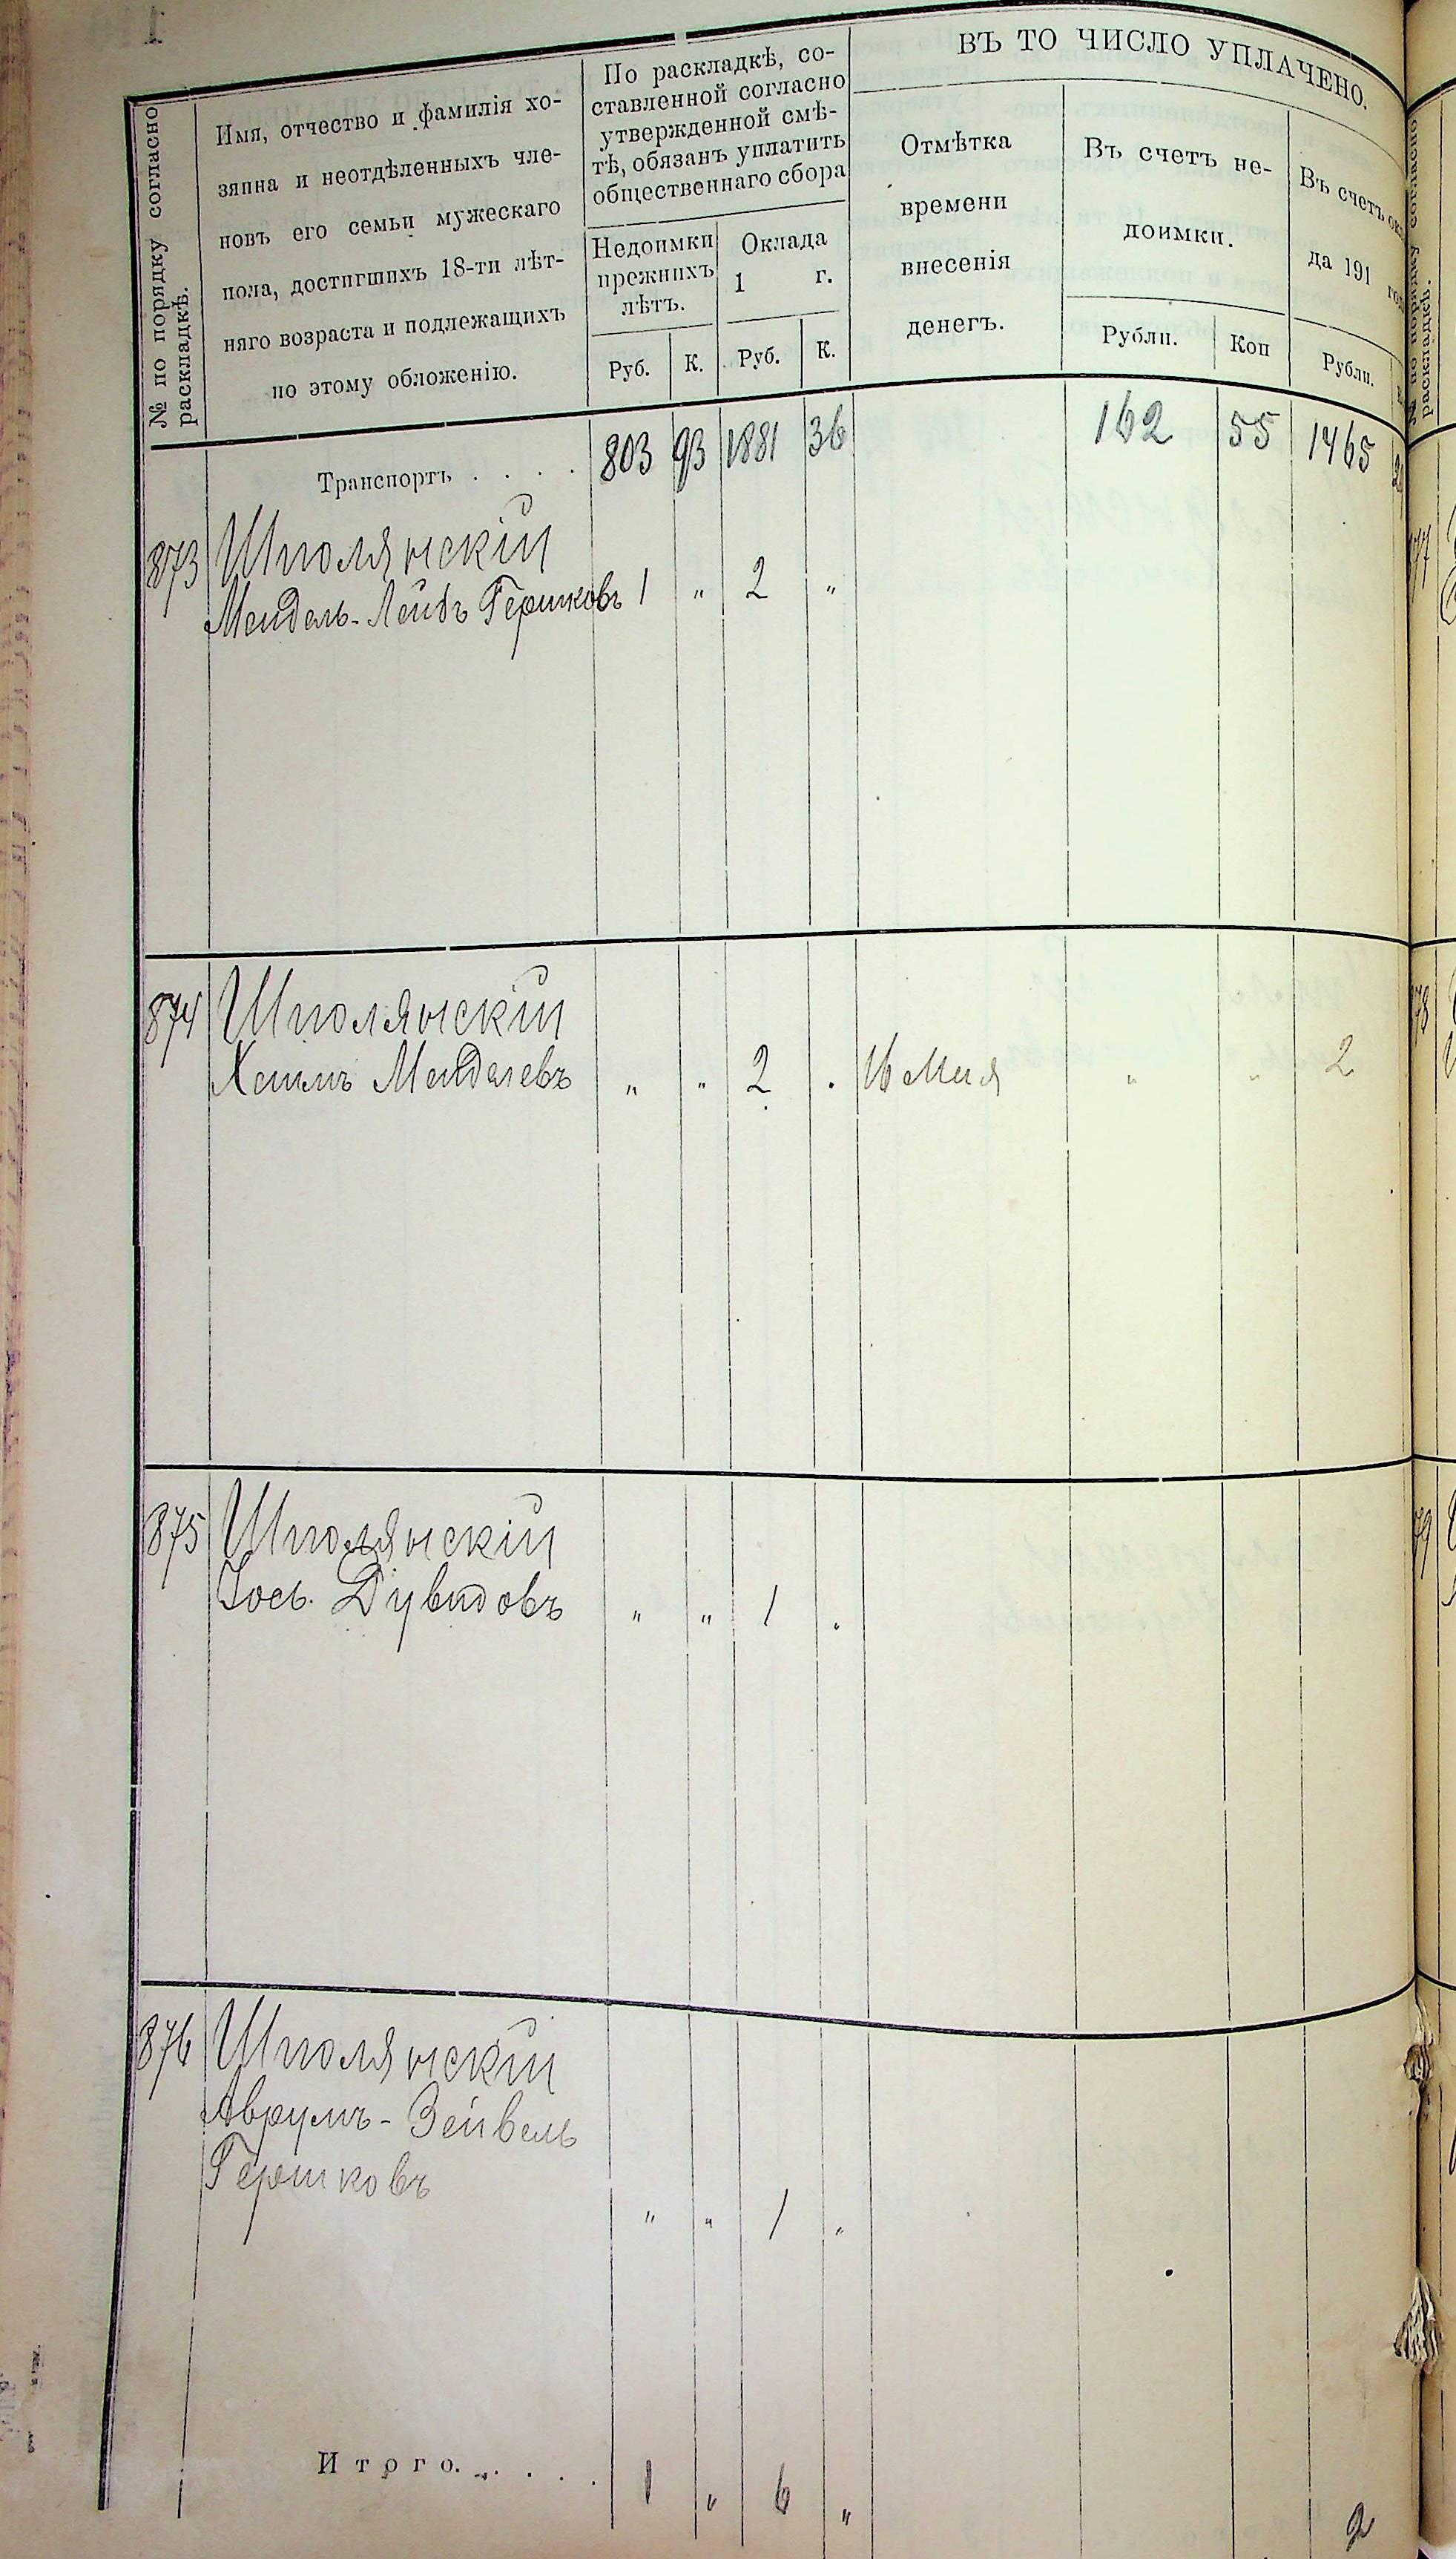 № по порядку согласно
раскладкѣ.
Имя, отчество и фамилія хо-
зяина и неотдѣленныхъ чле-
новъ его семьи мужескаго
пола, достигшихъ 18-ти лѣт-
няго возраста и подлежащихъ
по этому обложенію.
По раскладкѣ, со-
ставленной согласно
утвержденной смѣ-
тѣ, обязанъ уплатить
общественнаго сбора
Недоимки
прежнихъ
лѣтъ.
Оклада
1 г.
Руб. К. Руб. К.
ВЪ ТО ЧИСЛО УПЛАЧЕНО.
Отмѣтка
времени
внесенія
денегъ.
Въ счетъ не-
доимки.
Рубли. Коп
Въ счетъ
да 191
Рубли.
Транспортъ . . . . 803 93 1881 36 162 55 1465
873 Шполянскій
Мендель-Лейбъ Гершковъ 1 „ 2 „
874 Шполянскій
Хаимъ Менделевъ „ „ 2 . 16 Мая „ „ 2
875 Шполянскій
Іось Дувидовъ „ „ 1 „
876 Шполянскій
Аврумъ-Зейвель
Гершковъ
„ „ 1 „
Итого. . . . . 1 „ 6 „ 2